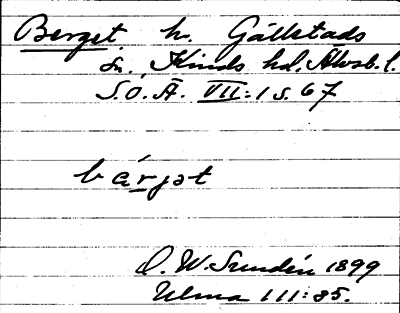 Berget h. Gällstads
sn., Kinds hd. Älvsb. l.
S.O.Ä. VII:1 s. 67
bárjət
D. W. Sundén 1899
Ulma 111:85.